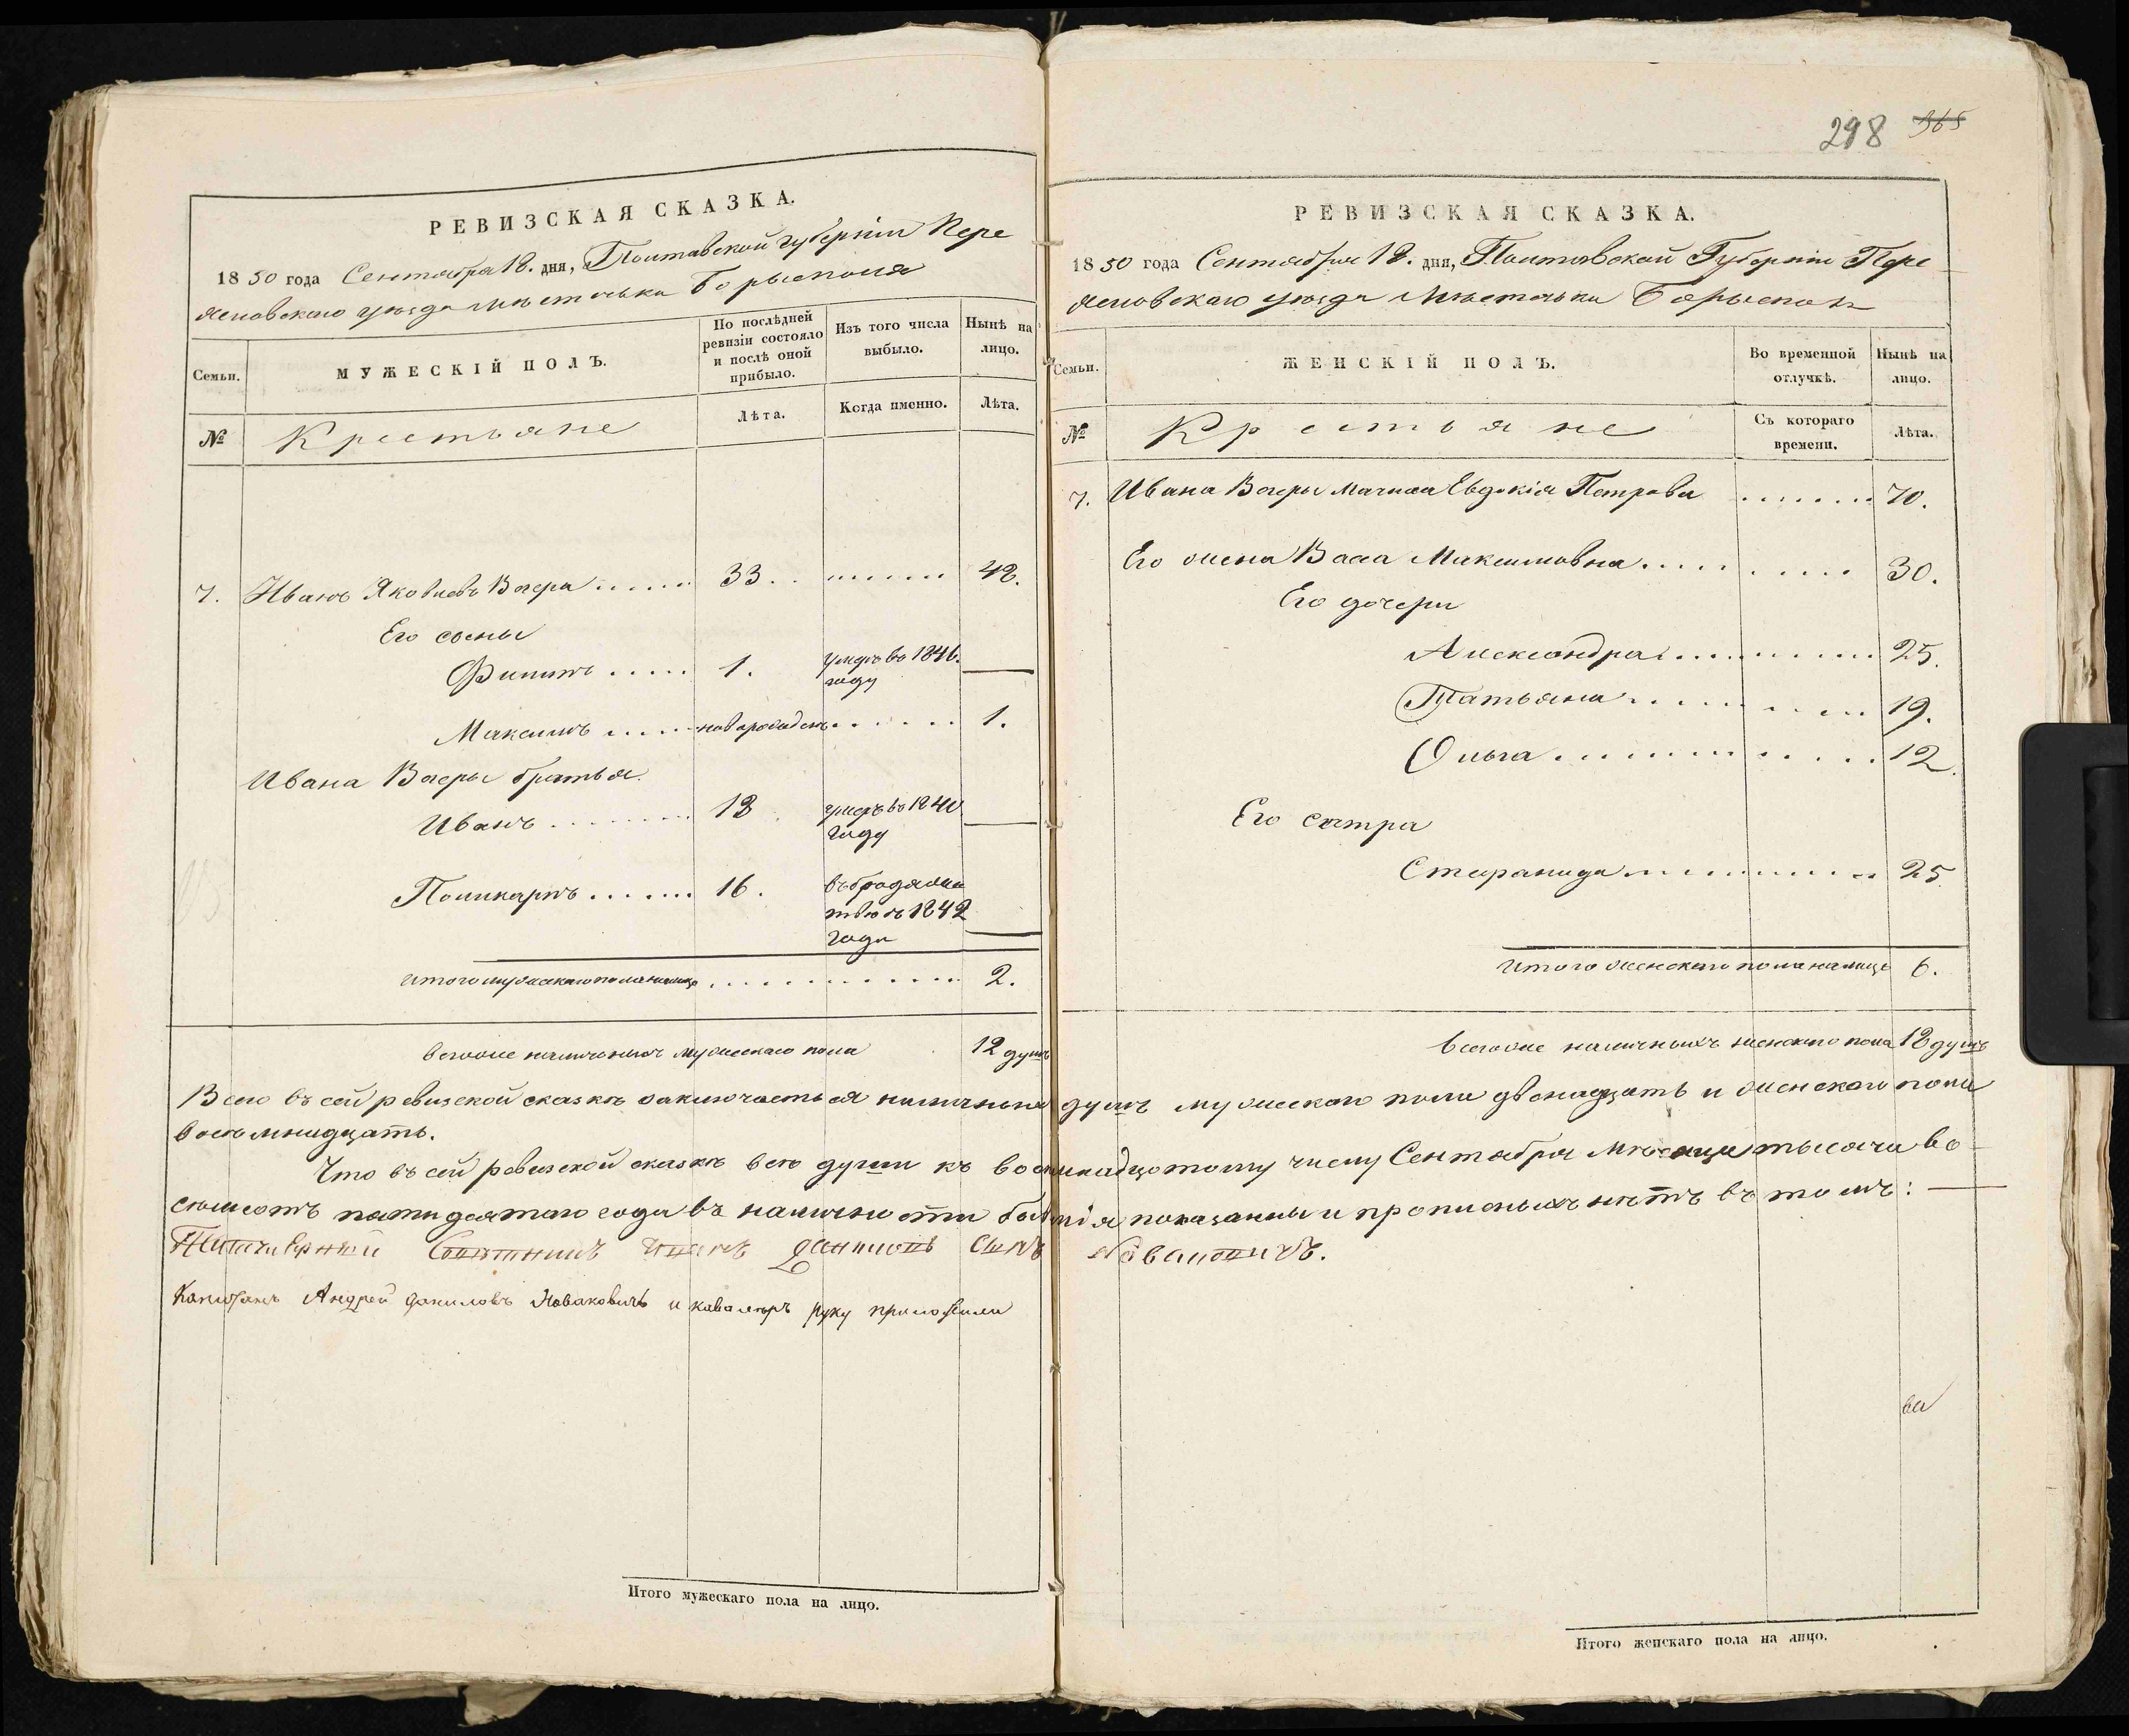 298 365
РЕВИЗСКАЯ СКАЗКА.
1850 года Сентября 18. дня, Полтавской губерніи Пере
яславскаго уезда мѣстечька Борысполя
Семьи.
МУЖЕСКІЙ ПОЛЪ.
По послѣдней ревизіи состояло и послѣ оной прибыло.
Изъ того числа выбыло.
Нынѣ на лицо.
№
Крестьяне
Лѣта.
Когда именно.
Лѣта.
7. Иванъ Яковлевъ Вечера ...... 33. ........ 42.
Его сыны
Филипъ ..... 1. умеръ въ 1846. году —
Максимъ ..... новорожденъ ...... 1.
Ивана Вечеры братья
Иванъ ........ 18 умеръ въ 1840 году —
Поликарпъ ....... 16. въ бродяжествѣ съ 1842 года —
Итого мужескаго пола налицо ........ 2.
всего же наличныхъ мужескаго пола 12 душъ
РЕВИЗСКАЯ СКАЗКА.
1850 года Сентября 18. дня, Полтавской Губерніи Пере
яславскаго уезда мѣстечька Борыспол
Семьи.
ЖЕНСКІЙ ПОЛЪ.
Во временной отлучкѣ.
Нынѣ на лицо.
№
Крестьяне
Съ котораго времени.
Лѣта.
7. Ивана Вечеры мачиха Евдокія Петрова ........ 70.
Его жена Васса Максимовна ......... 30.
Его дочери
Александра ........ 25.
Татьяна ........ 19.
Ольга ........ 12.
Его сестра
Стефанида ........ 25.
Итого женскаго пола налицо 6.
всего же наличныхъ женскаго пола 18 душъ
Всего въ сей ревизской сказкѣ заключаеться наличныхъ душъ мужескаго пола двенадцать и женскаго пола
восемнадцать.
Что въ сей ревизской сказкѣ всѣ души къ восемнадцотому числу Сентября мѣсяца тысяча во
семсотъ пятидесятаго года въ наличности бывшія показанны и прописныхъ нѣтъ въ томъ:
Титулярный Совѣтникъ Иванъ Даниловъ Сынъ Новаковичъ.
Капитанъ Андрей Даниловъ Новаковичъ и кавалеръ руку приложили
ва
Итого мужескаго пола на лицо.
Итого женскаго пола на лицо.